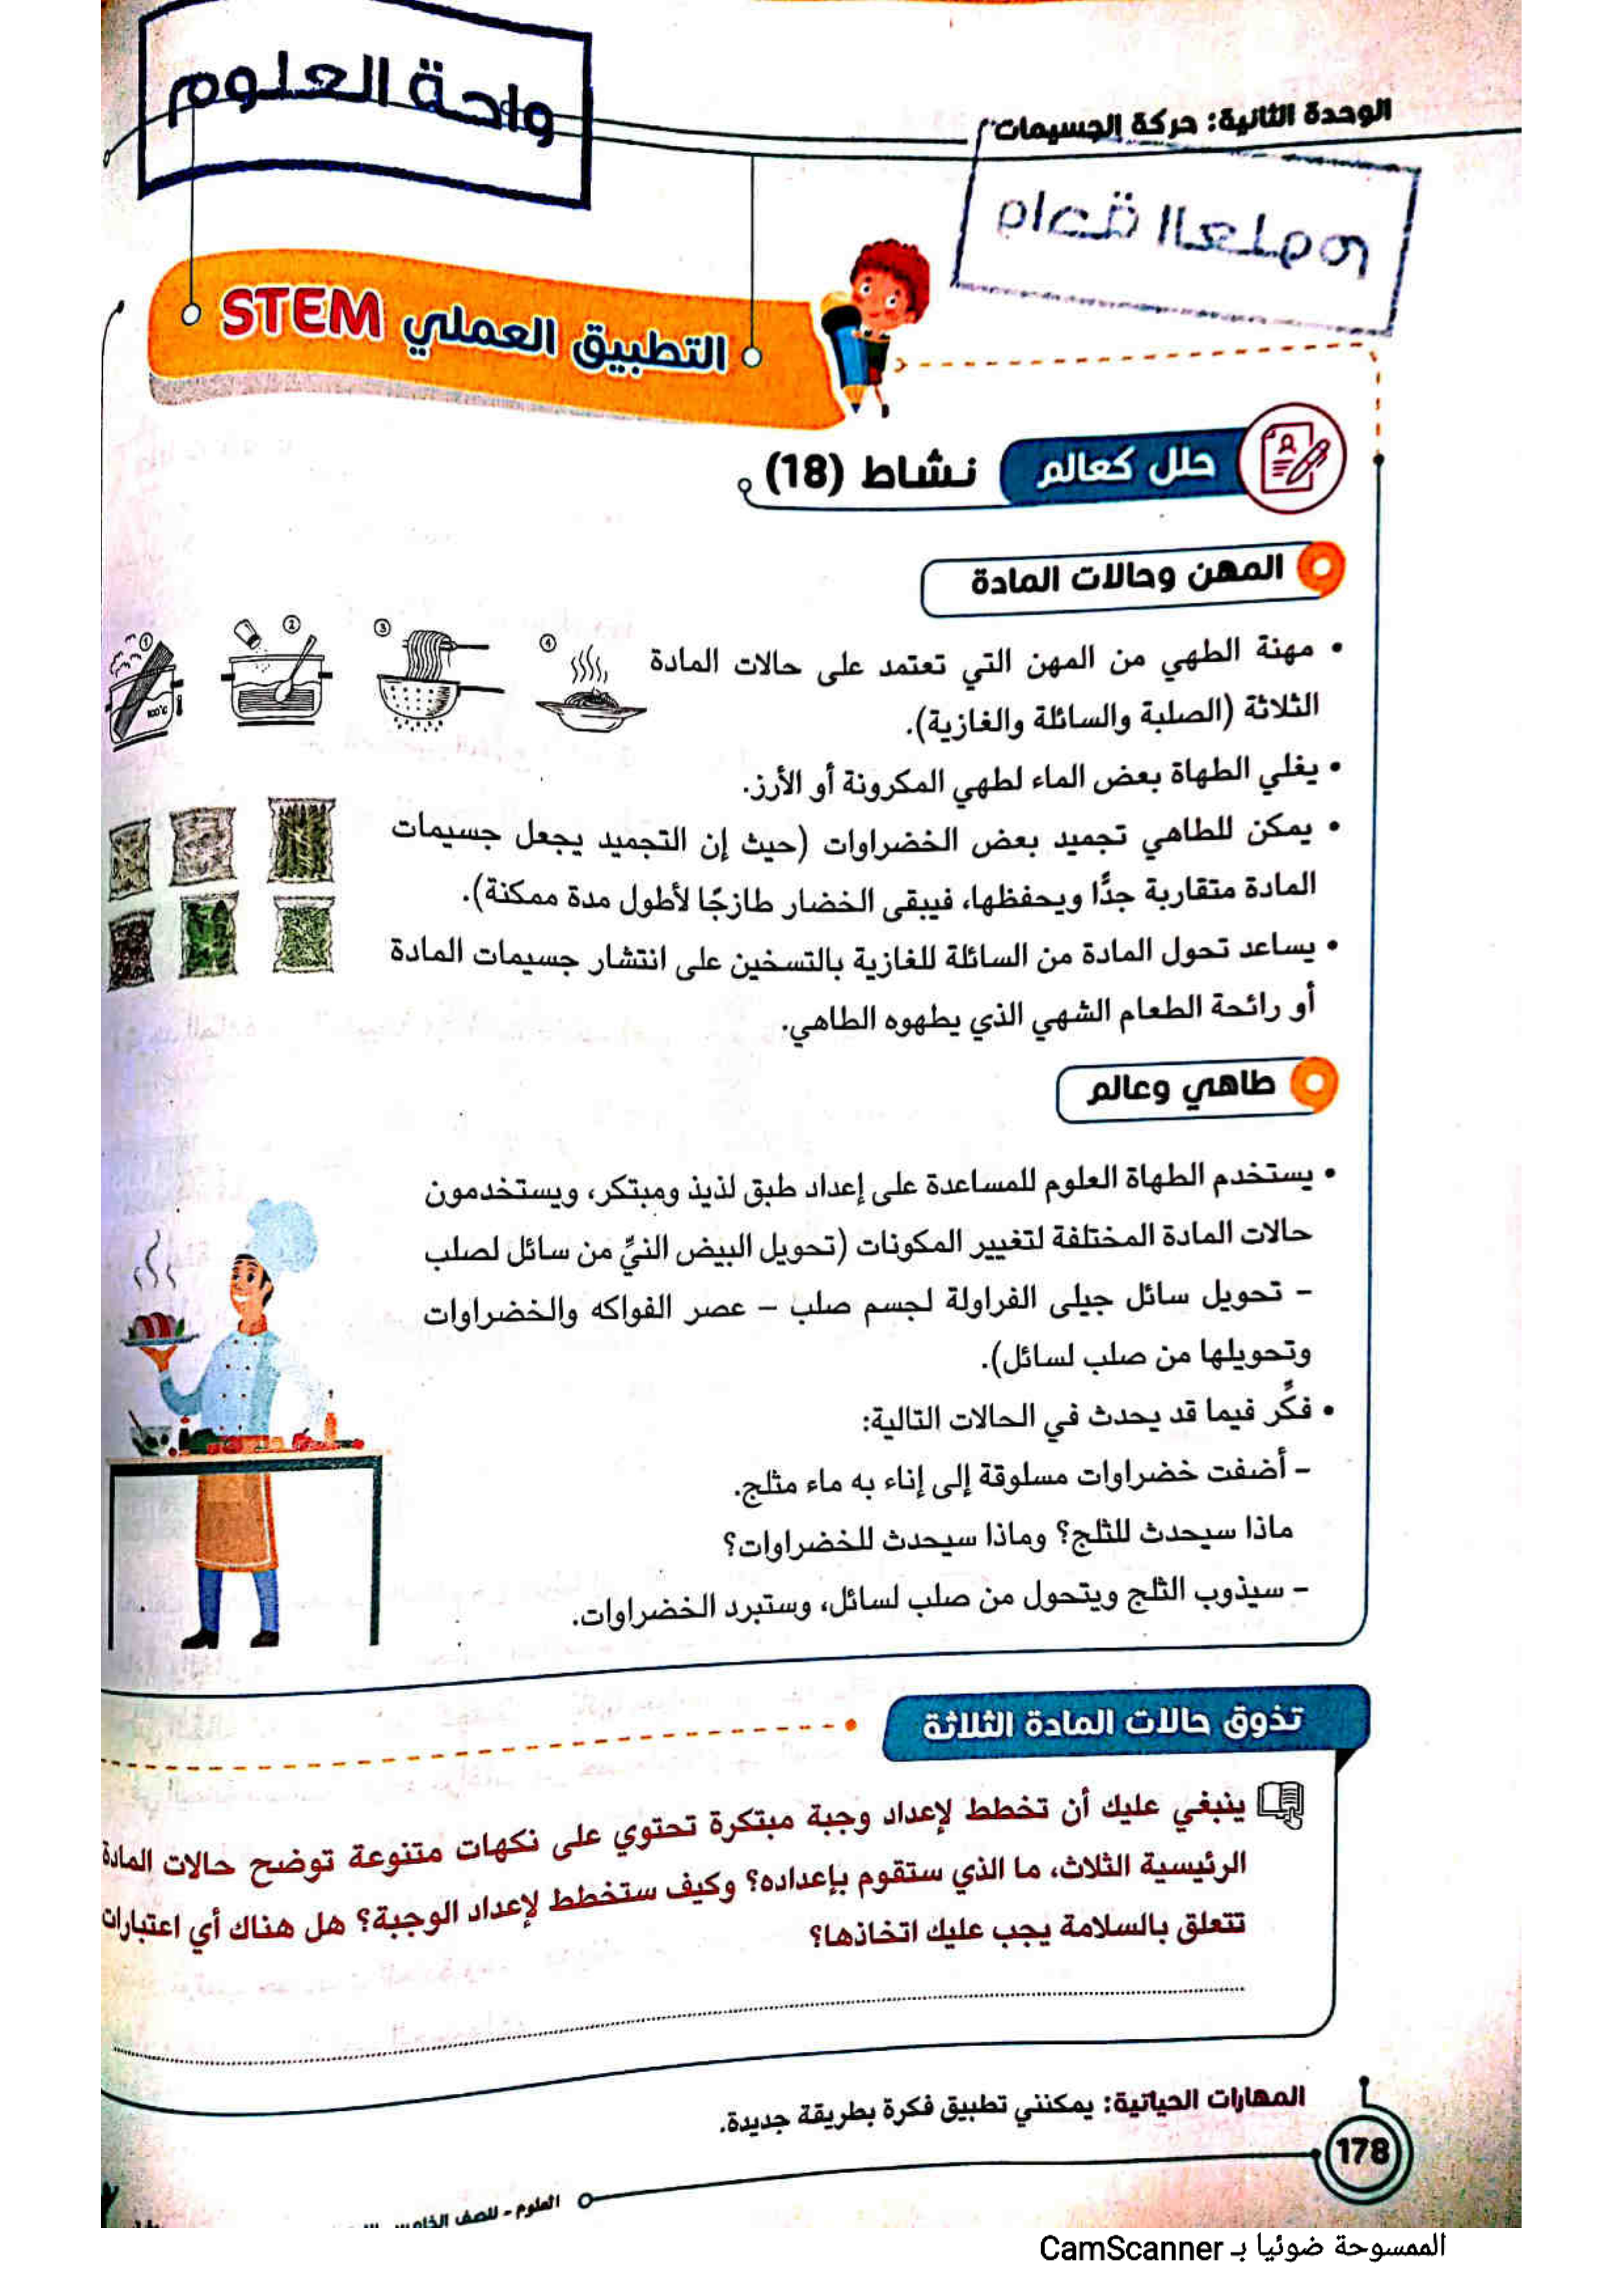 واحة العلوم
الوحدة الثانية: حركة الجسيمات
التطبيق العملي STEM
حلل كعالم نشاط (18)
المهن وحالات المادة
• مهنة الطهي من المهن التي تعتمد على حالات المادة
الثلاثة (الصلبة والسائلة والغازية).
① ② ③ ④
100°c
• يغلي الطهاة بعض الماء لطهي المكرونة أو الأرز.
• يمكن للطاهي تجميد بعض الخضراوات (حيث إن التجميد يجعل جسيمات
المادة متقاربة جدًّا ويحفظها، فيبقى الخضار طازجًا لأطول مدة ممكنة).
• يساعد تحول المادة من السائلة للغازية بالتسخين على انتشار جسيمات المادة
أو رائحة الطعام الشهي الذي يطهوه الطاهي.
طاهي وعالم
• يستخدم الطهاة العلوم للمساعدة على إعداد طبق لذيذ ومبتكر، ويستخدمون
حالات المادة المختلفة لتغيير المكونات (تحويل البيض النيِّ من سائل لصلب
– تحويل سائل جيلى الفراولة لجسم صلب – عصر الفواكه والخضراوات
وتحويلها من صلب لسائل).
• فكِّر فيما قد يحدث في الحالات التالية:
– أضفت خضراوات مسلوقة إلى إناء به ماء مثلج.
ماذا سيحدث للثلج؟ وماذا سيحدث للخضراوات؟
– سيذوب الثلج ويتحول من صلب لسائل، وستبرد الخضراوات.
تذوق حالات المادة الثلاثة
ينبغي عليك أن تخطط لإعداد وجبة مبتكرة تحتوي على نكهات متنوعة توضح حالات المادة
الرئيسية الثلاث، ما الذي ستقوم بإعداده؟ وكيف ستخطط لإعداد الوجبة؟ هل هناك أي اعتبارات
تتعلق بالسلامة يجب عليك اتخاذها؟
المهارات الحياتية: يمكنني تطبيق فكرة بطريقة جديدة.
178
العلوم - للصف الخامس
الممسوحة ضوئيا بـ CamScanner